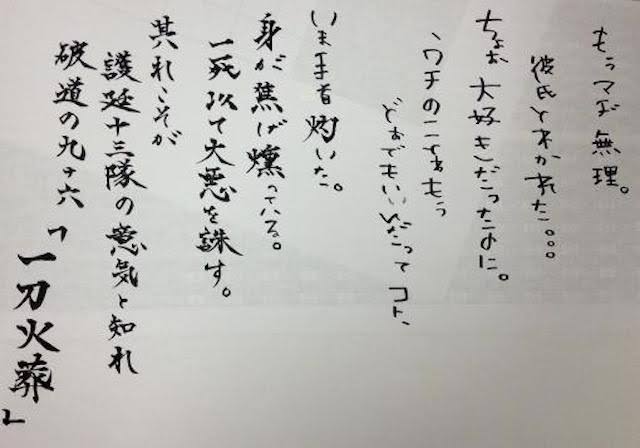 もぅマヂ無理。
彼氏とゎかれた。。。
ちょぉ大好きだったのに。
ゥチのことゎもぅ
どぉでもいいんだってコト、
いま手首灼いた。
身が焦げ燻っている。
一死以て大悪を誅す。
其れこそが
護廷十三隊の意気と知れ
破道の九十六「一刀火葬」